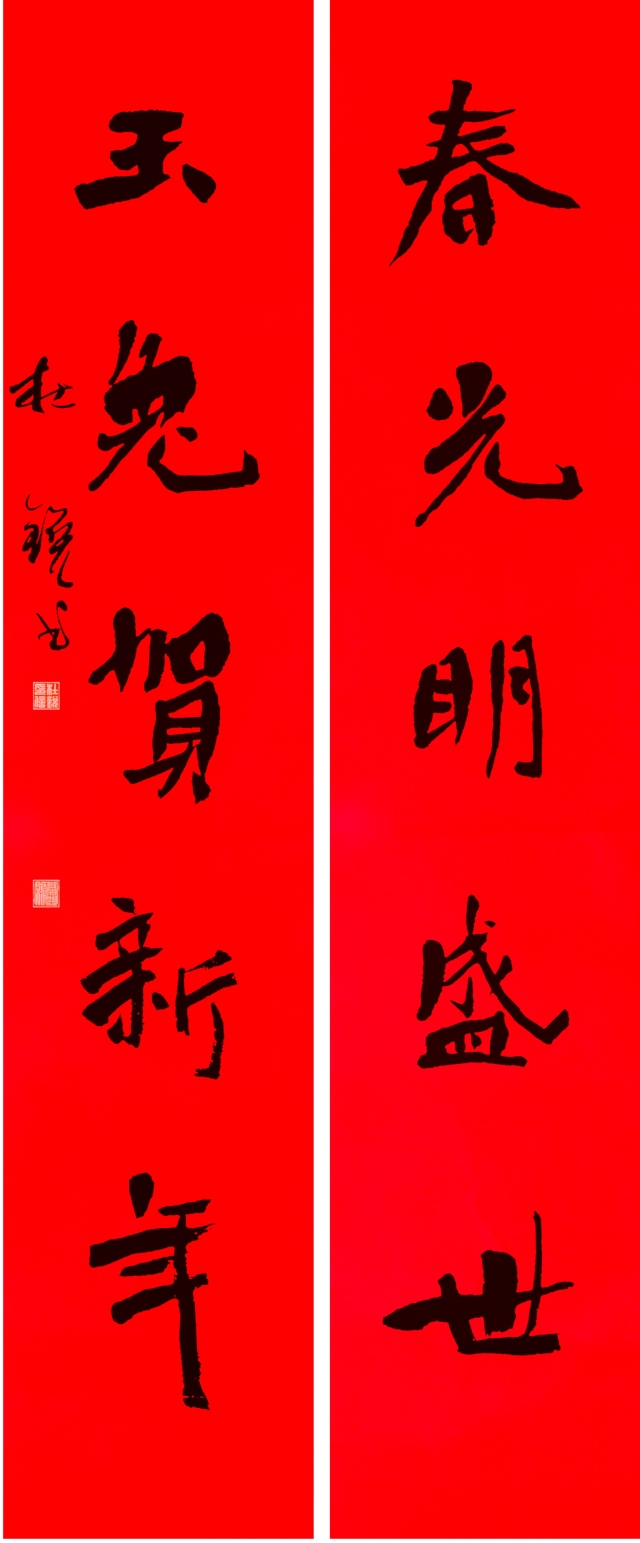 春光明盛世
玉兔賀新年
杜鋭书